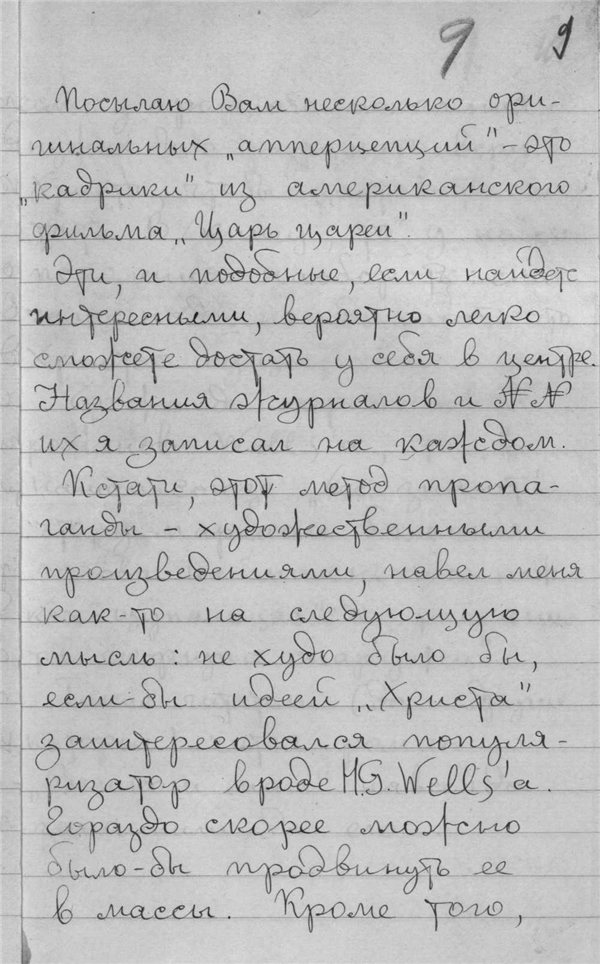 9 9
Посылаю Вам несколько ори-
гинальных „апперцепций" – это
„кадрики" из американского
фильма „Царь царей".
Эти, и подобные, если найдете
интересными, вероятно легко
сможете достать у себя в центре.
Названия журналов и №№
их я записал на каждом.
Кстати, этот метод пропа-
ганды – художественными
произведениями, навел меня
как-то на следующую
мысль: не худо было бы,
если-бы идеей „Христа"
заинтересовался популя-
ризатор вроде H.G. Wells'а.
Гораздо скорее можно
было-бы продвинуть ее
в массы. Кроме того,